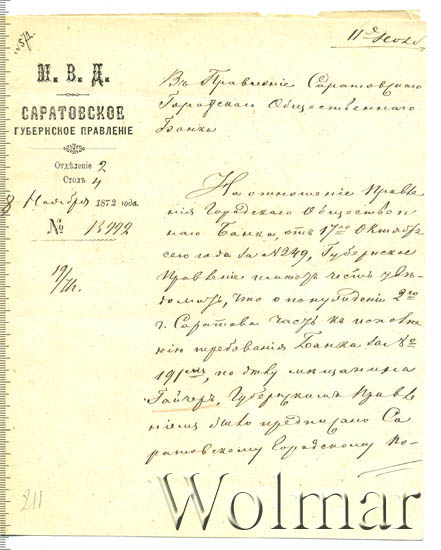 № 572.
11го Нояб
М. В. Д.
САРАТОВСКОЕ
ГУБЕРНСКОЕ ПРАВЛЕНІЕ
Отдѣленіе 2
Столъ 4
8 Ноября 1872 года.
№ 13992
Въ Правленіе Саратовскаго
Городскаго Общественнаго
Банка
На отношеніе Правле
нія Городскаго Обществен
наго Банка, отъ 17го Октября
сего года за № 249, Губернское
Правленіе имѣетъ честь увѣ
домить, что о понужденіи 2го
г. Саратова часть къ исполне
нію требованія Банка за №
191, по дѣлу мѣщанина
Гайчеръ, Губернскимъ Правле
ніемъ было предписано Са
ратовскому Городскому По-
211
Wolmar